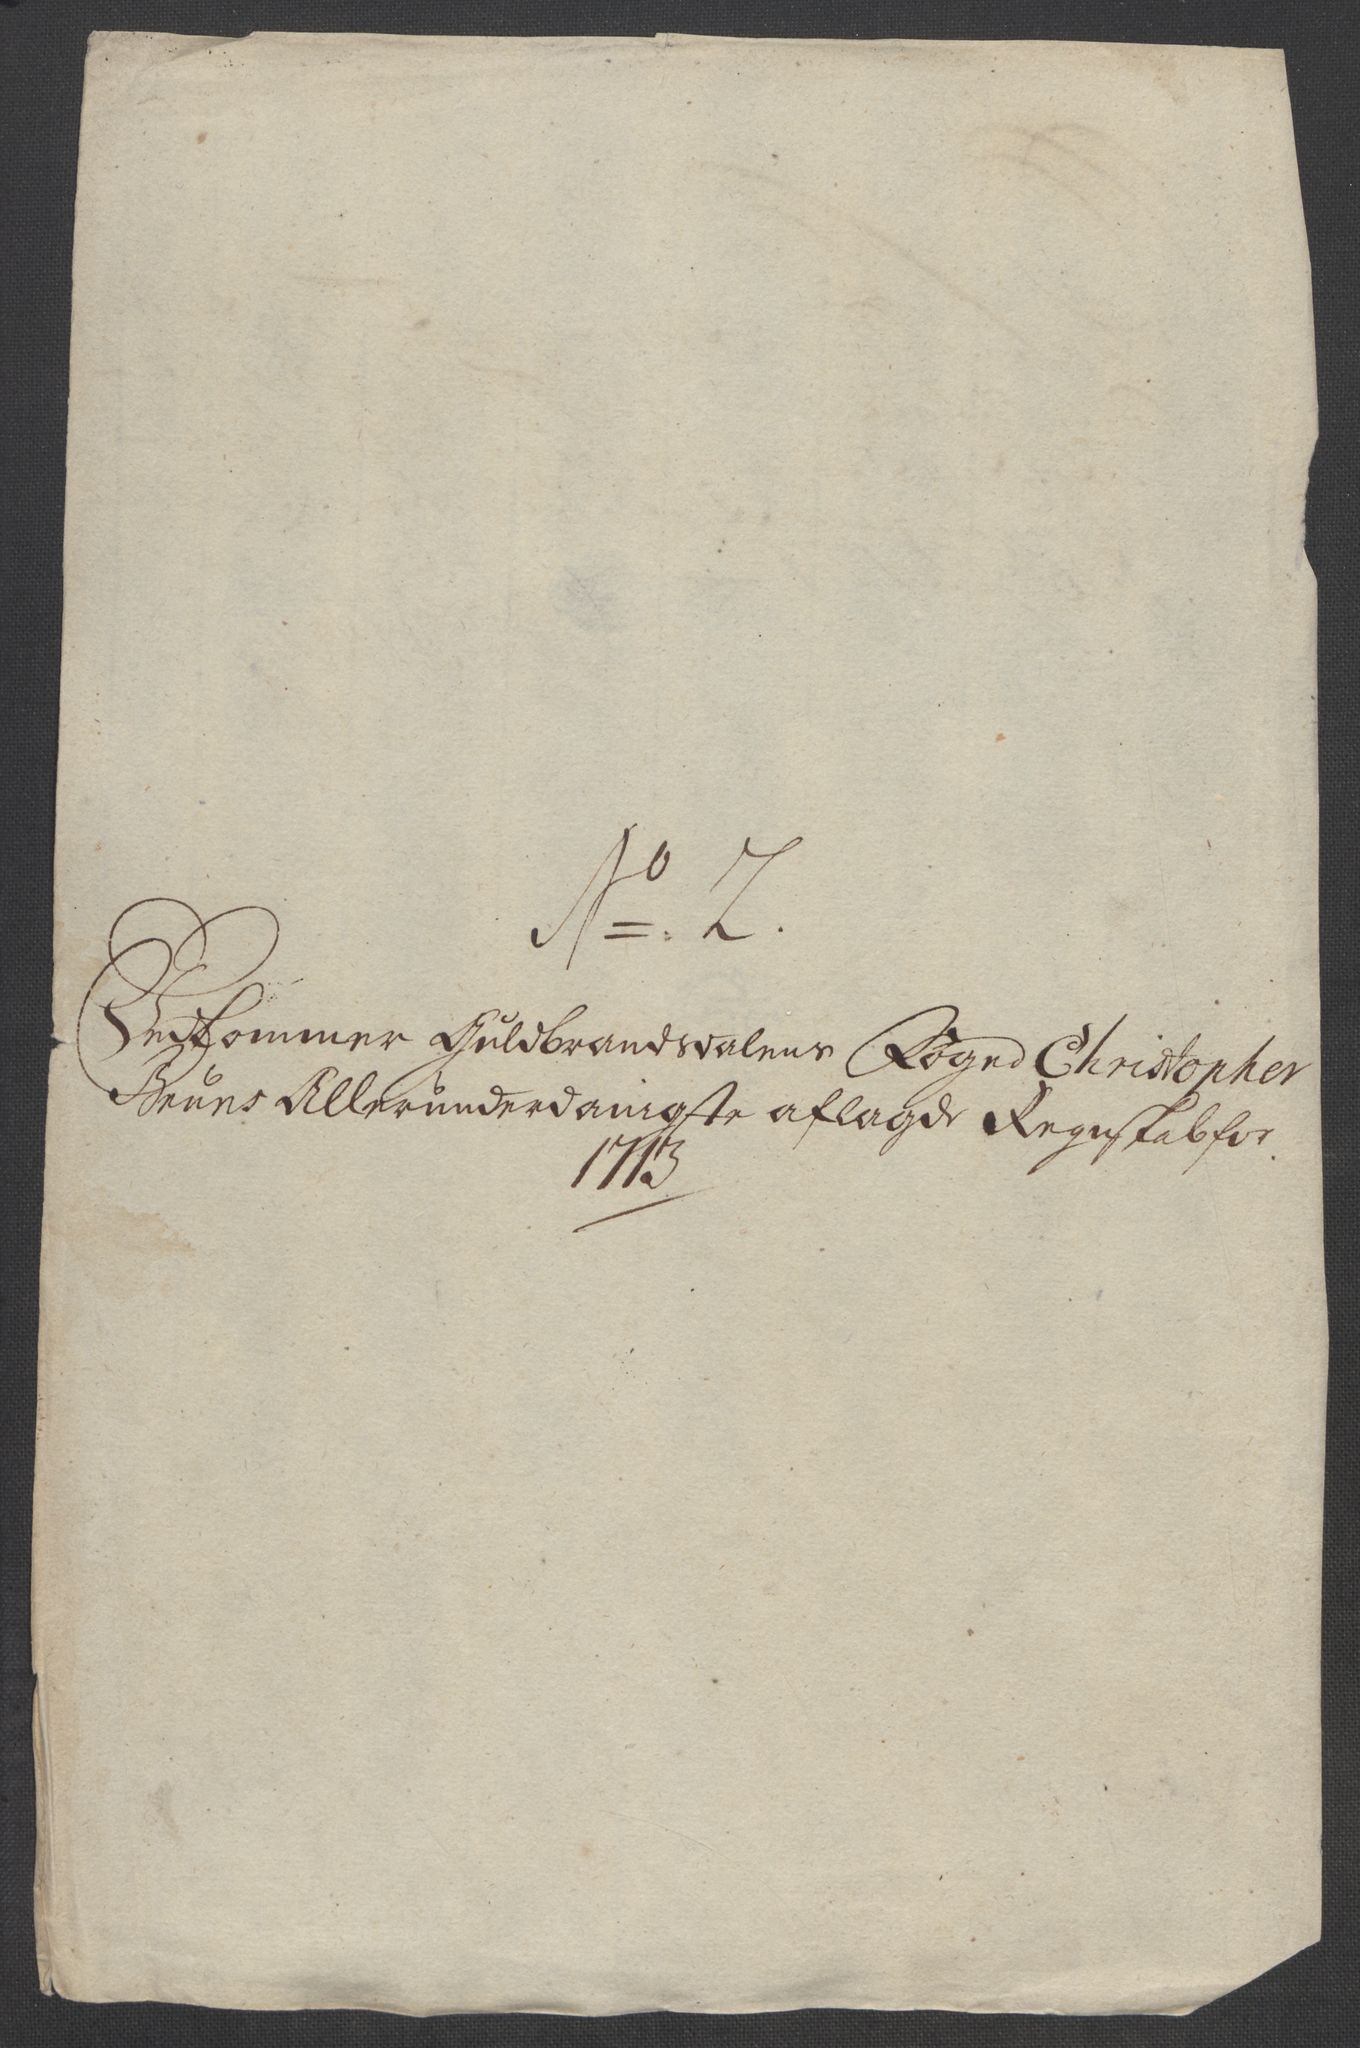 No 2.
Vedkommer Guldbrandsdalens Foged Christopher
Bruns Allerunderdanigste aflagde Regnskab for
1713